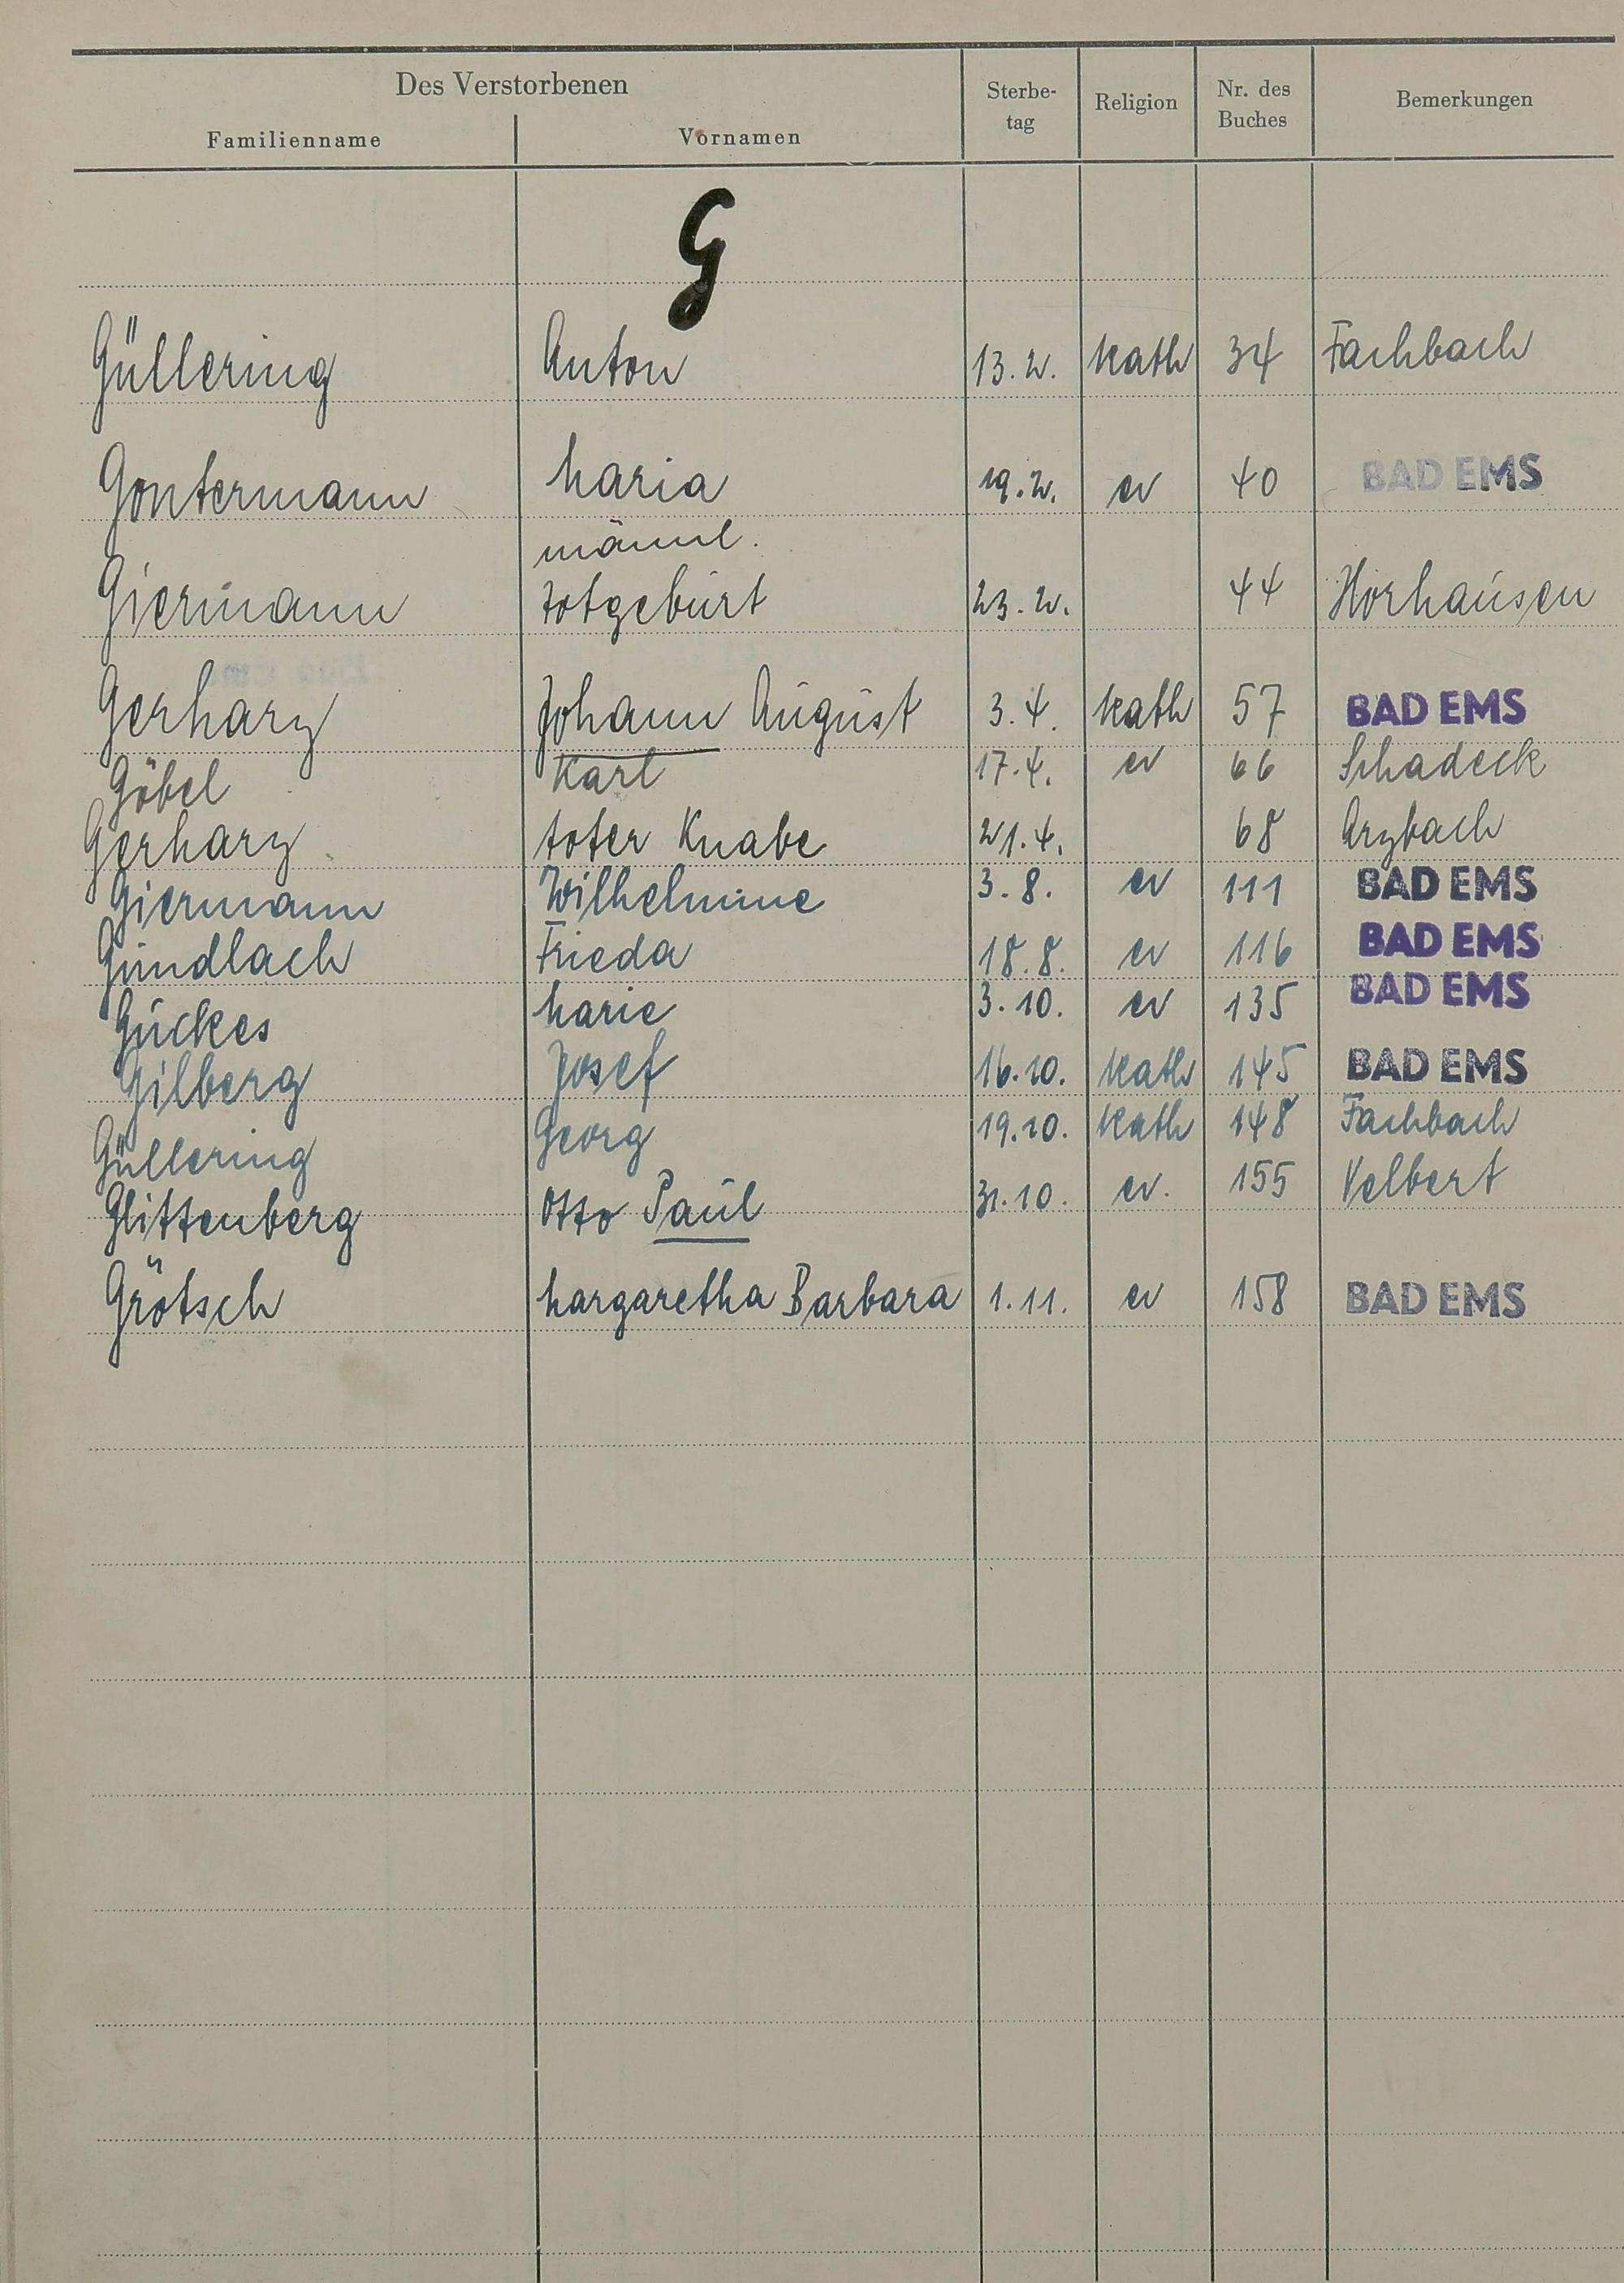 Des Verstorbenen
Familienname Vornamen Sterbe-tag Religion Nr. des Buches Bemerkungen
G
Güllering Anton 13.2. kath 34 Fachbach
Gontermann Maria 19.2. ev 40 BAD EMS
männl.
Giermann Totgeburt 23.2. 44 Horhausen
Gerharz Johann August 3.4. kath 57 BAD EMS
Göbel Karl 17.4. ev 66 Schadeck
Gerharz toter Knabe 21.4. 68 Arzbach
Giermann Wilhelmine 3.8. ev 111 BAD EMS
Gundlach Frieda 18.8. ev 116 BAD EMS
Guckes Marie 3.10. ev 135 BAD EMS
Gilberg Josef 16.10. kath 145 BAD EMS
Güllering Georg 19.10. kath 148 Fachbach
Glittenberg Otto Paul 31.10. ev. 155 Velbert
Grötsch Margaretha Barbara 1.11. ev 158 BAD EMS